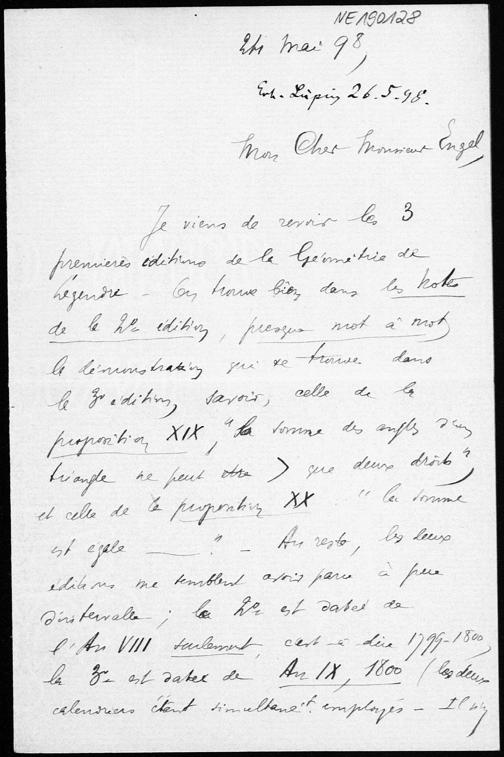 NE190128
Mai 98,
26.5.98.
Mon Cher Monsieur Engel,
Je viens de revoir les 3
premières éditions de la Géométrie de
Legendre – On trouve bien dans les Notes
de la 2e édition, presque mot à mot,
la démonstration qui se trouve dans
la 3e édition, savoir, celle de la
proposition XIX, "la somme des angles d'un
triangle ne peut être > que deux droits",
et celle de la proposition XX "la somme
est égale ___" – Au reste, les deux
éditions me semblent avoir paru à peu
d'intervalle ; la 2e est datée de
l'An VIII seulement, c'est-à-dire 1799-1800,
la 3e est datée de An IX, 1800 (les deux
calendriers étant simultanét. employés – Il n'y